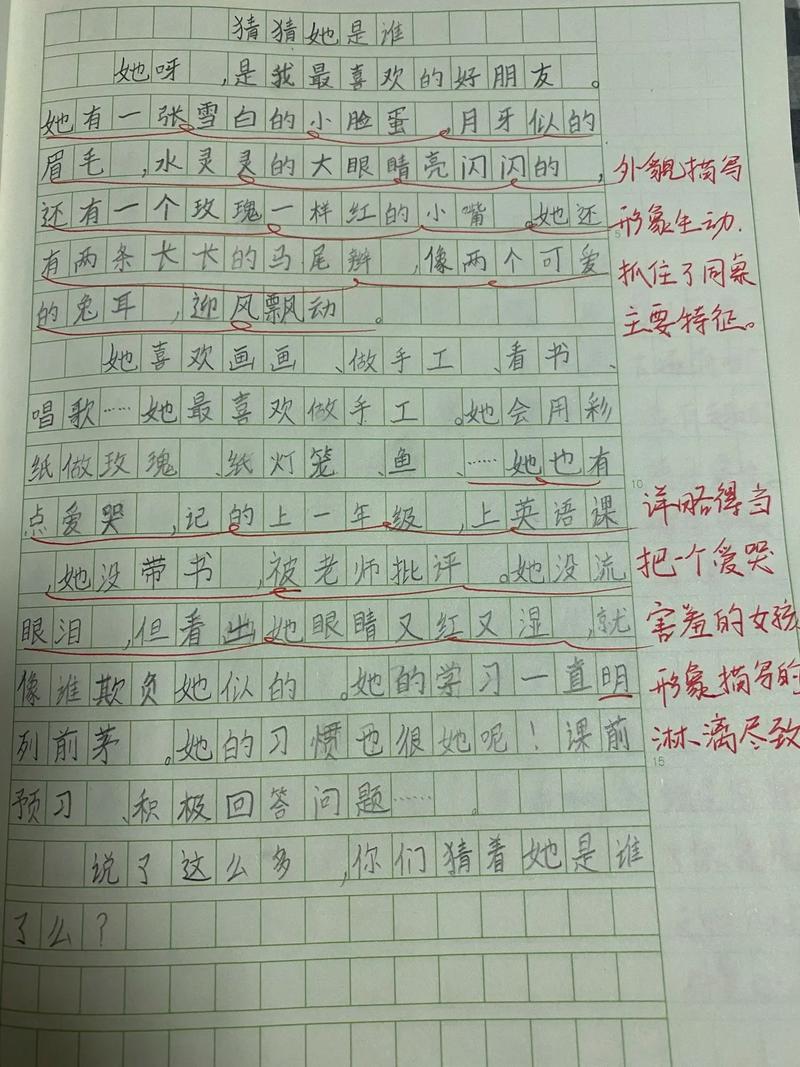 猜猜她是谁
她呀,是我最喜欢的好朋友。
她有一张雪白的小脸蛋,月牙似的
眉毛,水灵灵的大眼睛亮闪闪的,
还有一个玫瑰一样红的小嘴。她还
有两条长长的马尾辫,像两个可爱
的兔耳,迎风飘动。
她喜欢画画、做手工、看书、
唱歌……她最喜欢做手工。她会用彩
纸做玫瑰、纸灯笼、鱼、……她也有
点爱哭,记的上一年级,上英语课
,她没带书,被老师批评。她没流
眼泪,但看出她眼睛又红又湿,就
像谁欺负她似的。她的学习一直明
列前茅。她的习惯也很她呢!课前
预习、积极回答问题……。
说了这么多,你们猜着她是谁
了么?
外貌描写
形象生动.
抓住了同桌
主要特征。
详略得当
把一个爱哭
害羞的女孩
形象描写的
淋漓尽致
5
10
15